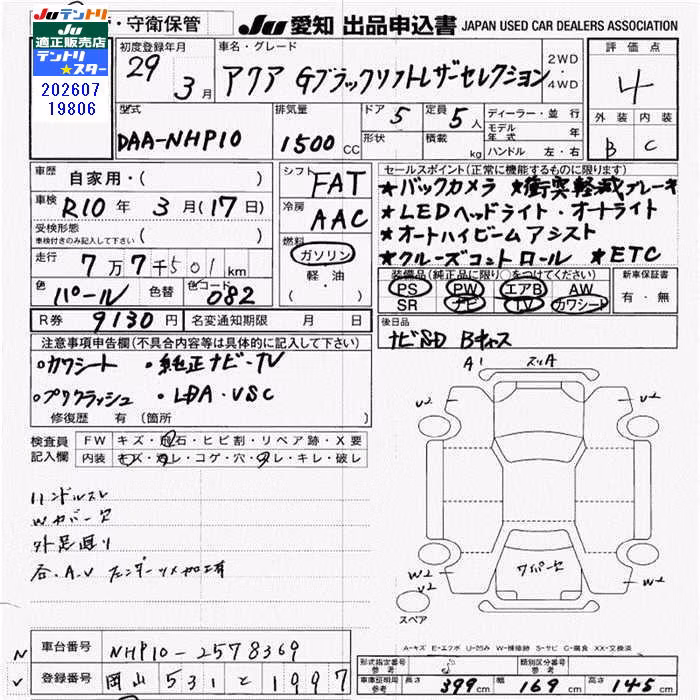 JU テントリ
適正販売店
テントリ
★スター
202607
19806
・守衛保管
JU 愛知 出品申込書 JAPAN USED CAR DEALERS ASSOCIATION
初度登録年月 29年 3月
車名・グレード アクア Gブラックソフトレザーセレクション
2WD・4WD
評価点 4
外装 B 内装 C
型式 DAA-NHP10
排気量 1500 CC
ドア 5 定員 5人
形状 積載 kg
ディーラー・並行
モデル年式 年
ハンドル 左・右
車歴 自家用・( )
車検 R10年 3月(17日)
受検形態 ( )
車検付きのみ記入して下さい
走行 7万7千501km
色 パール 色替 色コード 082
R券 9130円 名変通知期限 月 日
シフト FAT
冷房 AAC
燃料 ガソリン
軽・油
( )
セールスポイント(正常に機能するものに限ります)
★バックカメラ ★衝突軽減ブレーキ
★LEDヘッドライト・オートライト
★オートハイビームアシスト
★クルーズコントロール ★ETC
装備品(純正品に限り○をつけてください)
PS PW エアB AW
SR ナビ TV カワシート
新車保証書
有・無
後日品
ナビSD Bキャス
注意事項申告欄(不具合内容等は具体的に記入して下さい)
・カワシート ・純正ナビ・TV
・プリクラッシュ ・LDA・VSC
修復歴 有(箇所 )
検査員記入欄
FW キズ・飛石・ヒビ割・リペア跡・X要
内装 キズ・汚レ・コゲ・穴・スレ・キレ・破レ
ハンドルスレ
Wカバー欠
外足廻り
A1
U2 U2
W2 W2
U2 W2
ワイパー欠
スペア
A-キズ E-エクボ U-凹み W-補修跡 S-サビ C-腐食 XX-交換済
車台番号 NHP10-2578369
登録番号 岡山 531 と 1997
形式指定番号 参考
類別区分番号 参考
車庫証明用 参考 長さ 399cm 幅 169cm 高さ 145cm